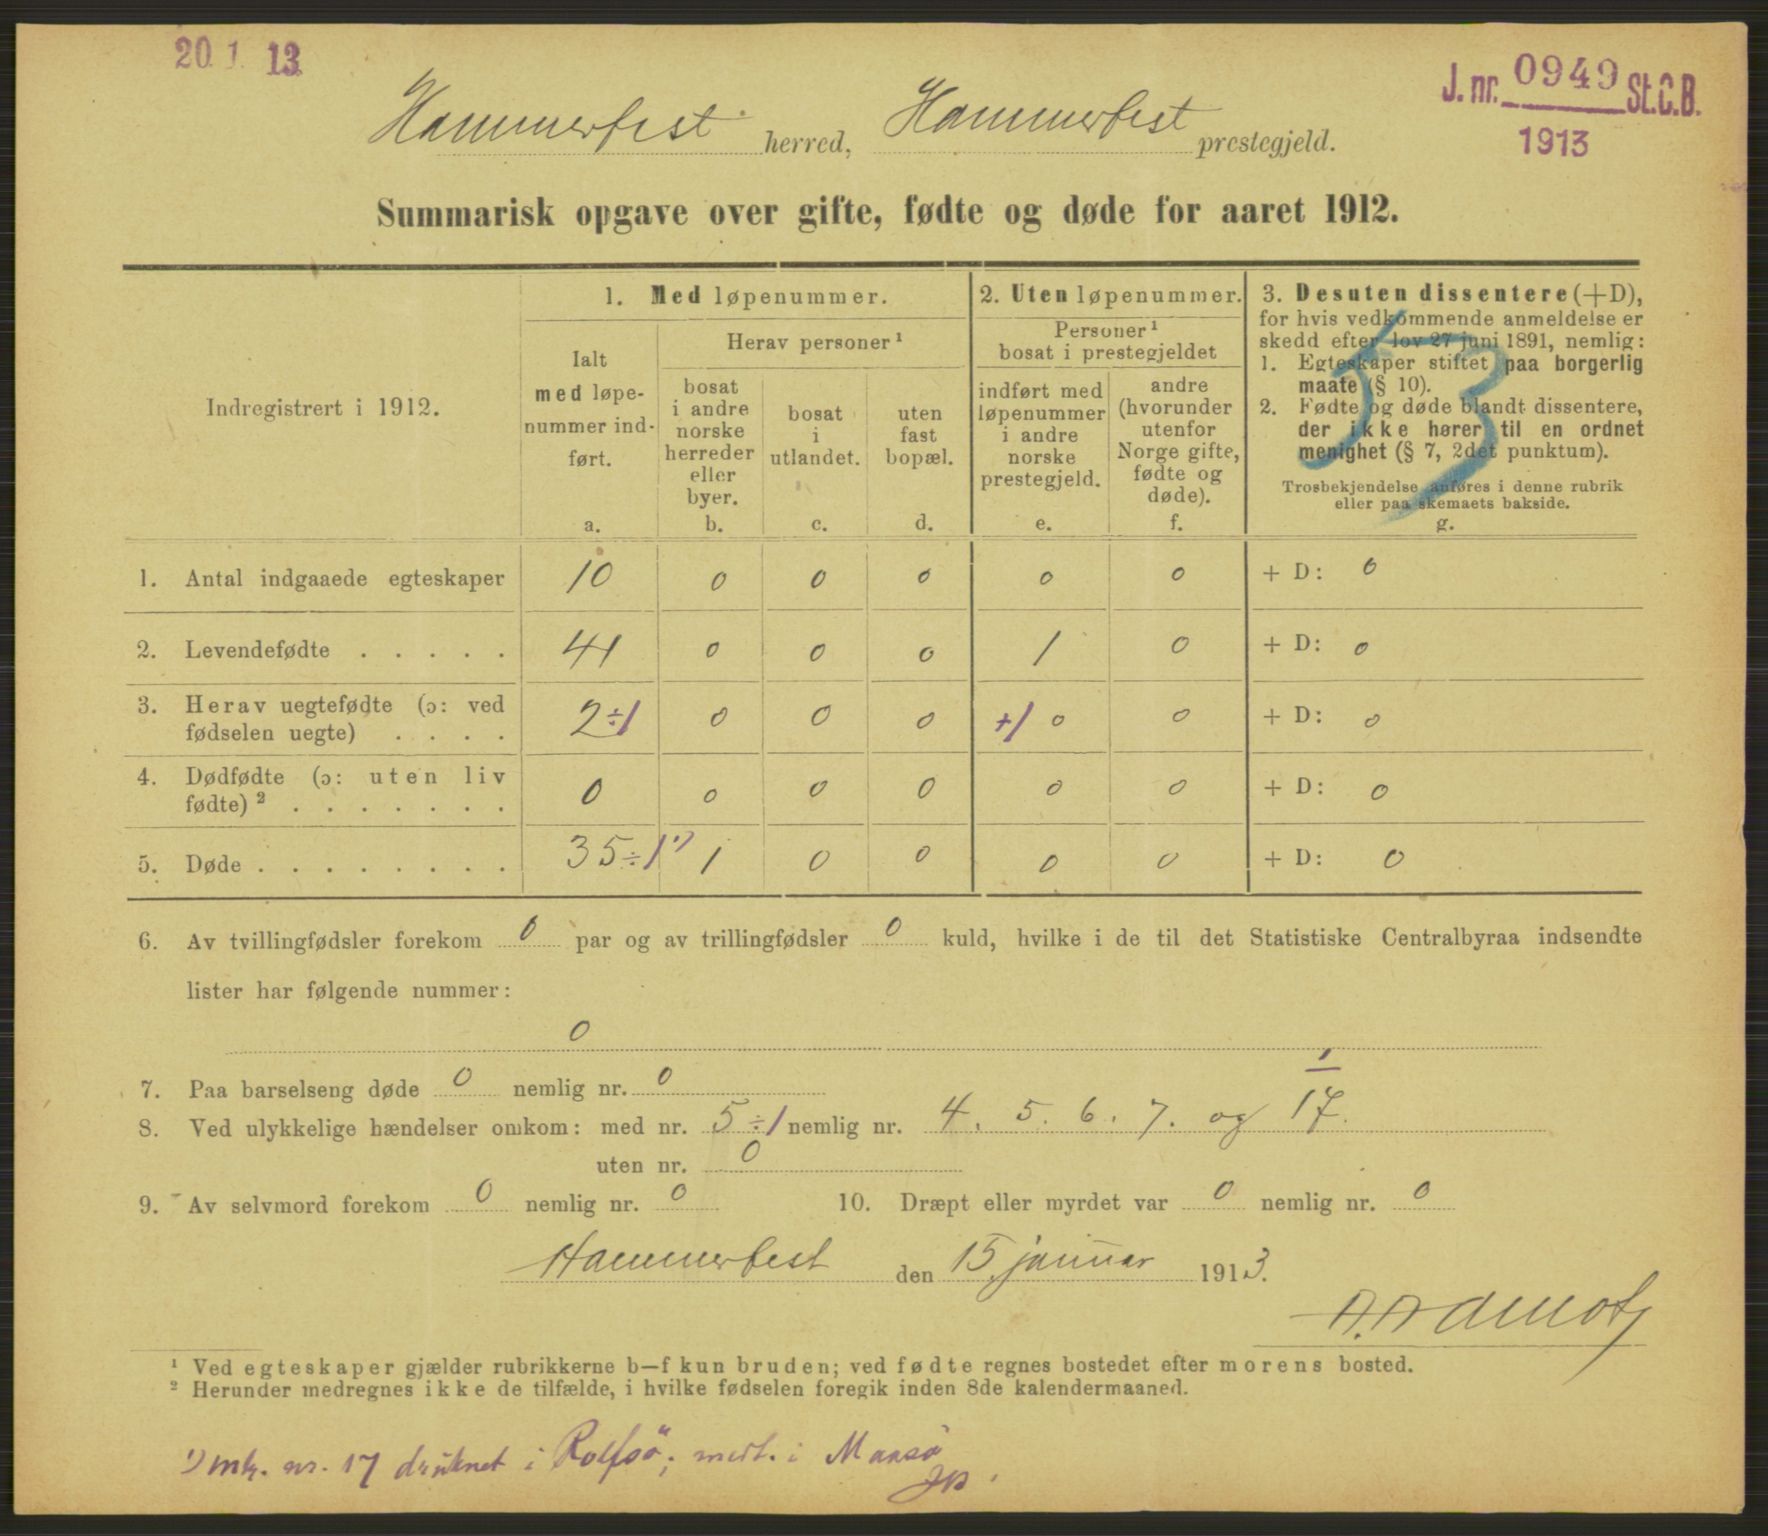 20. 1. 13
J. nr. 0949 St.C.B.
1913
Hammerfest herred, Hammerfest prestegjeld.
Summarisk opgave over gifte, fødte og døde for aaret 1912.
Indregistrert i 1912.
1. Med løpenummer.
Ialt
med løpe-
nummer ind-
ført.
a.
Herav personer ¹
bosat
i andre
norske
herreder
eller
byer.
b.
bosat
i
utlandet.
c.
uten
fast
bopæl.
d.
2. Uten løpenummer.
Personer ¹
bosat i prestegjeldet
indført med
løpenummer
i andre
norske
prestegjeld.
e.
andre
(hvorunder
utenfor
Norge gifte,
fødte og
døde).
f.
3. Desuten dissentere (+D),
for hvis vedkommende anmeldelse er
skedd efter lov 27 juni 1891, nemlig:
1. Egteskaper stiftet paa borgerlig
maate (§ 10).
2. Fødte og døde blandt dissentere,
der ikke hører til en ordnet
menighet (§ 7, 2det punktum).
Trosbekjendelse anføres i denne rubrik
eller paa skemaets bakside.
g.
53
1. Antal indgaaede egteskaper 10 0 0 0 0 0 + D: 0
2. Levendefødte . . . . . 41 0 0 0 1 0 + D: 0
3. Herav uegtefødte (ɔ: ved
fødselen uegte) . . . . 2÷1 0 0 0 +1 0 0 + D: 0
4. Dødfødte (ɔ: uten liv
fødte) ² . . . . . . . 0 0 0 0 0 0 + D: 0
5. Døde . . . . . . . . 35÷1 ¹) 1 0 0 0 0 + D: 0
6. Av tvillingfødsler forekom 0 par og av trillingfødsler 0 kuld, hvilke i de til det Statistiske Centralbyraa indsendte
lister har følgende nummer:
0
7. Paa barselseng døde 0 nemlig nr. 0
8. Ved ulykkelige hændelser omkom: med nr. 5 ÷1 nemlig nr. 4. 5. 6. 7. og 17.
uten nr. 0
9. Av selvmord forekom 0 nemlig nr. 0 10. Dræpt eller myrdet var 0 nemlig nr. 0
Hammerfest den 15 januar 1913.
¹ Ved egteskaper gjælder rubrikkerne b—f kun bruden; ved fødte regnes bostedet efter morens bosted.
² Herunder medregnes ikke de tilfælde, i hvilke fødselen foregik inden 8de kalendermaaned.
¹) mk. nr. 17 druknet i Rolfsö; medt. i Maasö